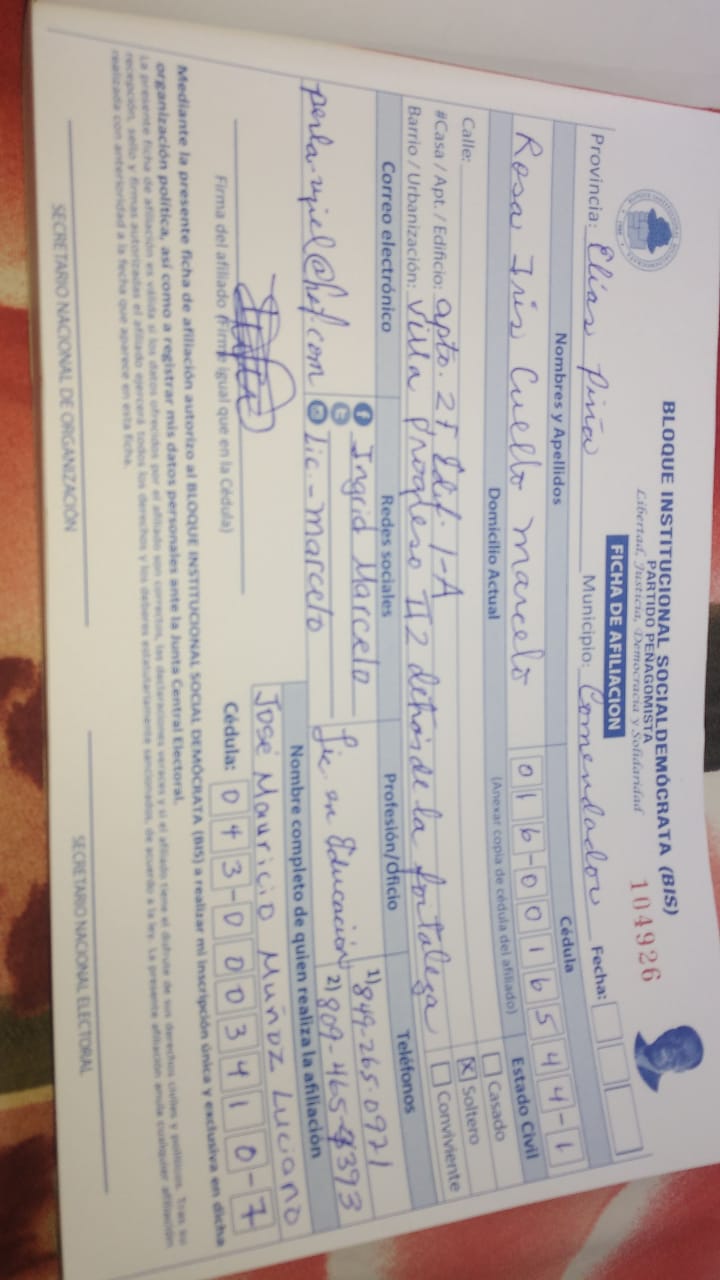 BLOQUE INSTITUCIONAL SOCIALDEMÓCRATA (BIS)
PARTIDO PEÑAGOMISTA
Libertad, Justicia, Democracia y Solidaridad
104926
FICHA DE AFILIACION
Provincia: Elías Piña Municipio: Comendador Fecha:
Nombres y Apellidos Cédula Estado Civil
Rosa Iris Cuello Marcelo 016-0016544-1
Casado
Soltero
Conviviente
Domicilio Actual (Anexar copia de cédula del afiliado)
Calle:
#Casa / Apt. / Edificio: apto. 2F, Edif. 1-A
Barrio / Urbanización: Villa progreso #2 detrás de la fortaleza
Correo electrónico Redes sociales Profesión/Oficio Teléfonos
Ingrid Marcelo
Lic. en Educación
1) 849-265-0921
2) 809-465-4393
Lic.-Marcelo
Nombre completo de quien realiza la afiliación
José Mauricio Muñoz Luciano
Cédula: 043-0003410-7
Firma del afiliado (Firme igual que en la Cédula)
Mediante la presente ficha de afiliación autorizo al BLOQUE INSTITUCIONAL SOCIAL DEMÓCRATA (BIS) a realizar mi inscripción única y exclusiva en dicha
organización política, así como a registrar mis datos personales ante la Junta Central Electoral.
La presente ficha de afiliación es válida si los datos ofrecidos por el afiliado son correctos, las declaraciones veraces y si el afiliado tiene el disfrute de sus derechos civiles y políticos. Tras su
recepción, sello y firmas autorizadas el afiliado ejercerá todos los derechos y los deberes estatutariamente sancionados, de acuerdo a la ley. La presente afiliación anula cualquier afiliación
realizada con anterioridad a la fecha que aparece en esta ficha.
SECRETARIO NACIONAL DE ORGANIZACIÓN SECRETARIO NACIONAL ELECTORAL